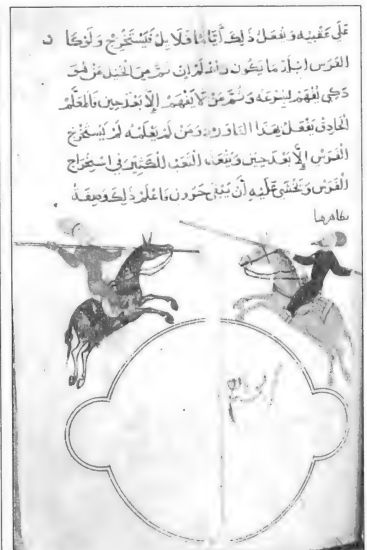 على عقبيه وتفعل ذلك أيامًا قلائل فيستخرج ولو كان
الفرس ابلد ما يكون واعلم ان ثم من الخيل من هو
ذكي يفهم بسرعه وثم من لا يفهم إلا بعد حين فالمعلم
الحاذق يفعل بهذا ومن لم يعلمه لم يستخرج
الفرس إلا بعد حين ويتعب التعب الكثير في استخراج
الفرس ويخشى عليه أن يبقى حرون فاعلم ذلك وصفة